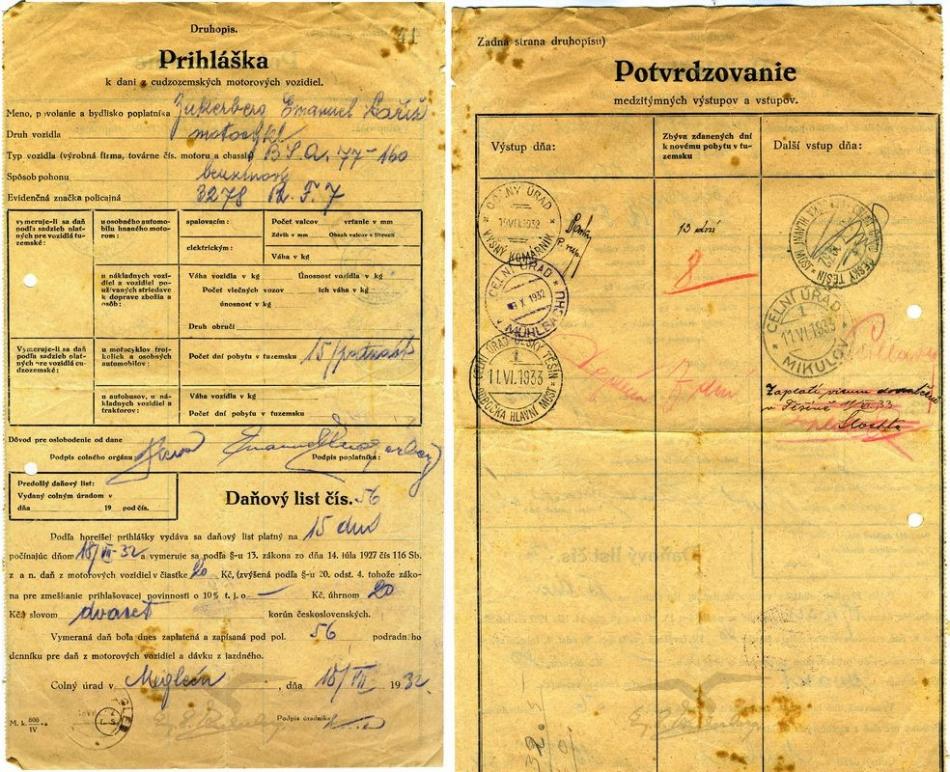 Druhopis.
41
Prihláška
k dani z cudzozemských motorových vozidiel.
Meno, povolanie a bydlisko poplatníka Emanuel
Druh vozidla motocykl
Typ vozidla (výrobná firma, továrne čís. motoru a chassis) B.S.A. 77-160
Spôsob pohonu benzinový
Evidenčná značka policajná 3278
vymeruje-li sa daň podľa sadzieb platných pre vozidlá tuzemské:
u osobného automobilu hnaného motorom:
spalovacím:
elektrickým:
Počet valcov vŕtanie v mm
Zdvih v mm Obsah valcov v litroch
Váha v kg
u nákladných vozidiel a vozidiel používaných striedave k doprave zbožia a osôb:
Váha vozidla v kg Únosnosť vozidla v kg
Počet vlečných vozov ich váha v kg
únosnosť v kg
Druh obručí
Vymeruje-li sa daň podľa sadzieb platných pre vozidlá cudzozemské:
u motocyklov trojkolíc a osobných automobilov:
Počet dní pobytu v tuzemsku 15/
u autobusov, u nákladných vozidiel a traktorov:
Váha vozidla v kg
Počet dní pobytu v tuzemsku
Dôvod pre oslobodenie od dane
Podpis colného orgánu: Podpis poplatníka:
Predošlý daňový list:
Vydaný colným úradom v
dňa 19 pod čís.
Daňový list čís. 56
Podľa horejšej prihlášky vydáva sa daňový list platný na 15 dní
počínajúc dňom 18/VII-32 a vymeruje sa podľa §-u 13. zákona zo dňa 14. júla 1927 čís 116 Sb.
z. a n. daň z motorových vozidiel v čiastke 20 Kč, (zvýšená podľa §-u 20. odst. 4. tohože zákona pre zmeškanie prihlašovacej povinnosti o 10% t. j. o — Kč, úhrnom 20
Kč) slovom dvacet korún československých.
Vymeraná daň bola dnes zaplatená a zapísaná pod pol. 56 podradného
denníku pre daň z motorových vozidiel a dávku z jazdného.
Colný úrad v , dňa 18/VII 1932.
Podpis úradníka:
M. k. 800/IV
Zadná strana druhopisu)
Potvrdzovanie
medzitýmných výstupov a vstupov.
Výstup dňa:
Zbýva zdanených dní k novému pobytu v tuzemsku
Ďalší vstup dňa:
COLNÝ ÚRAD
VYŠNÝ KOMÁRNIK
13 dní
8
ČESKÝ TĚŠÍN
CELNÍ ÚRAD
X 1932
MÜHLBACH
CELNÍ ÚŘAD
1
11.VI.1933
MIKULOV
CELNÍ ÚŘAD ČESKÝ TĚŠÍN
1
11.VI.1933
ODBOČKA HLAVNÍ MOST
7 dní